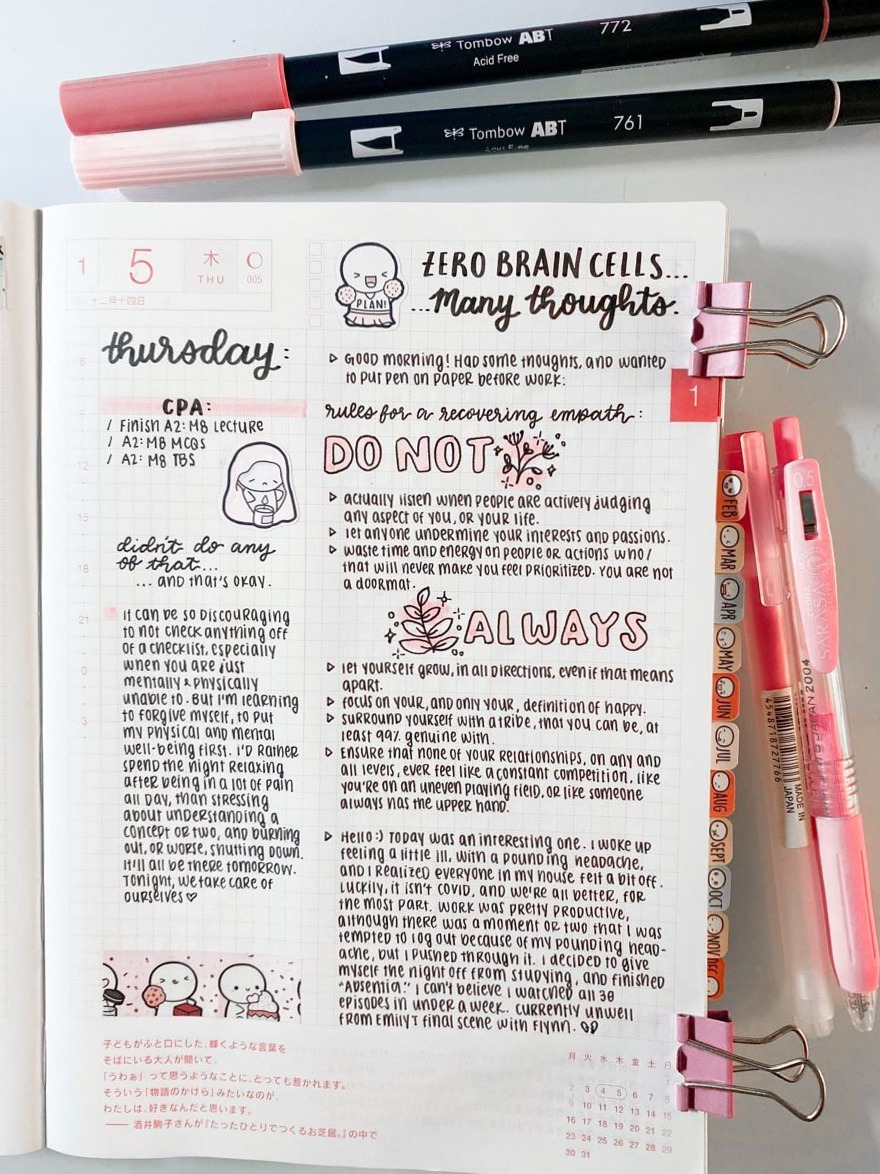 Tombow ABT 772
Acid Free
Tombow ABT 761
1 5 木 THU 005
十二月十四日
PLAN!
ZERO BRAIN CELLS...
...Many thoughts.
thursday:
CPA:
/ Finish A2: M8 Lecture
/ A2: M8 MCQs
/ A2: M8 TBS
didn't do any
of that...
... and that's okay.
It can be so discouraging
to not check anything off
of a checklist, especially
when you are just
mentally & physically
unable to. But I'm learning
to forgive myself, to put
my physical and mental
well-being first. I'd rather
spend the night relaxing
after being in a lot of pain
all day, than stressing
about understanding a
concept or two, and burning
out, or worse, shutting down.
It'll all be there tomorrow.
Tonight, we take care of
ourselves ♡
6
9
12
15
18
21
0
3
▷ Good morning! Had some thoughts, and wanted
to put pen on paper before work:
rules for a recovering empath:
DO NOT
▷ actually listen when people are actively judging
any aspect of you, or your life.
▷ let anyone undermine your interests and passions.
▷ waste time and energy on people or actions who/
that will never make you feel prioritized. You are not
a doormat.
ALWAYS
▷ let yourself grow, in all directions, even if that means
apart.
▷ focus on your, and only your, definition of happy.
▷ surround yourself with a tribe, that you can be, at
least 99% genuine with.
▷ Ensure that none of your relationships, on any and
all levels, ever feel like a constant competition. like
you're on an uneven playing field, or like someone
always has the upper hand.
▷ Hello :) Today was an interesting one. I woke up
feeling a little ill, with a pounding headache,
and I realized everyone in my house felt a bit off.
Luckily, it isn't covid, and we're all better, for
the most part. Work was pretty productive,
although there was a moment or two that I was
tempted to log out because of my pounding head-
ache, but I pushed through it. I decided to give
myself the night off from studying, and finished
"Absentia." I can't believe I watched all 30
episodes in under a week. Currently unwell
from Emily's final scene with Flynn.
1
FEB
MAR
APR
MAY
JUN
JUL
AUG
SEPT
OCT
NOV
DEC
0.5
MADE IN
JAPAN
子どもがふと口にした、輝くような言葉を
そばにいる大人が聞いて、
「うわぁ」って思うようなことに、とっても惹かれます。
そういう「物語のかけら」みたいなのが、
わたしは、好きなんだと思います。
—— 酒井駒子さんが『たったひとりでつくるお芝居。』の中で
月 火 水 木 金 土 日
2 3 4 5 6 7 8
9 10 11 12 13 14 15
16 17 18 19 20 21 22
23 24 25 26 27 28 29
30 31